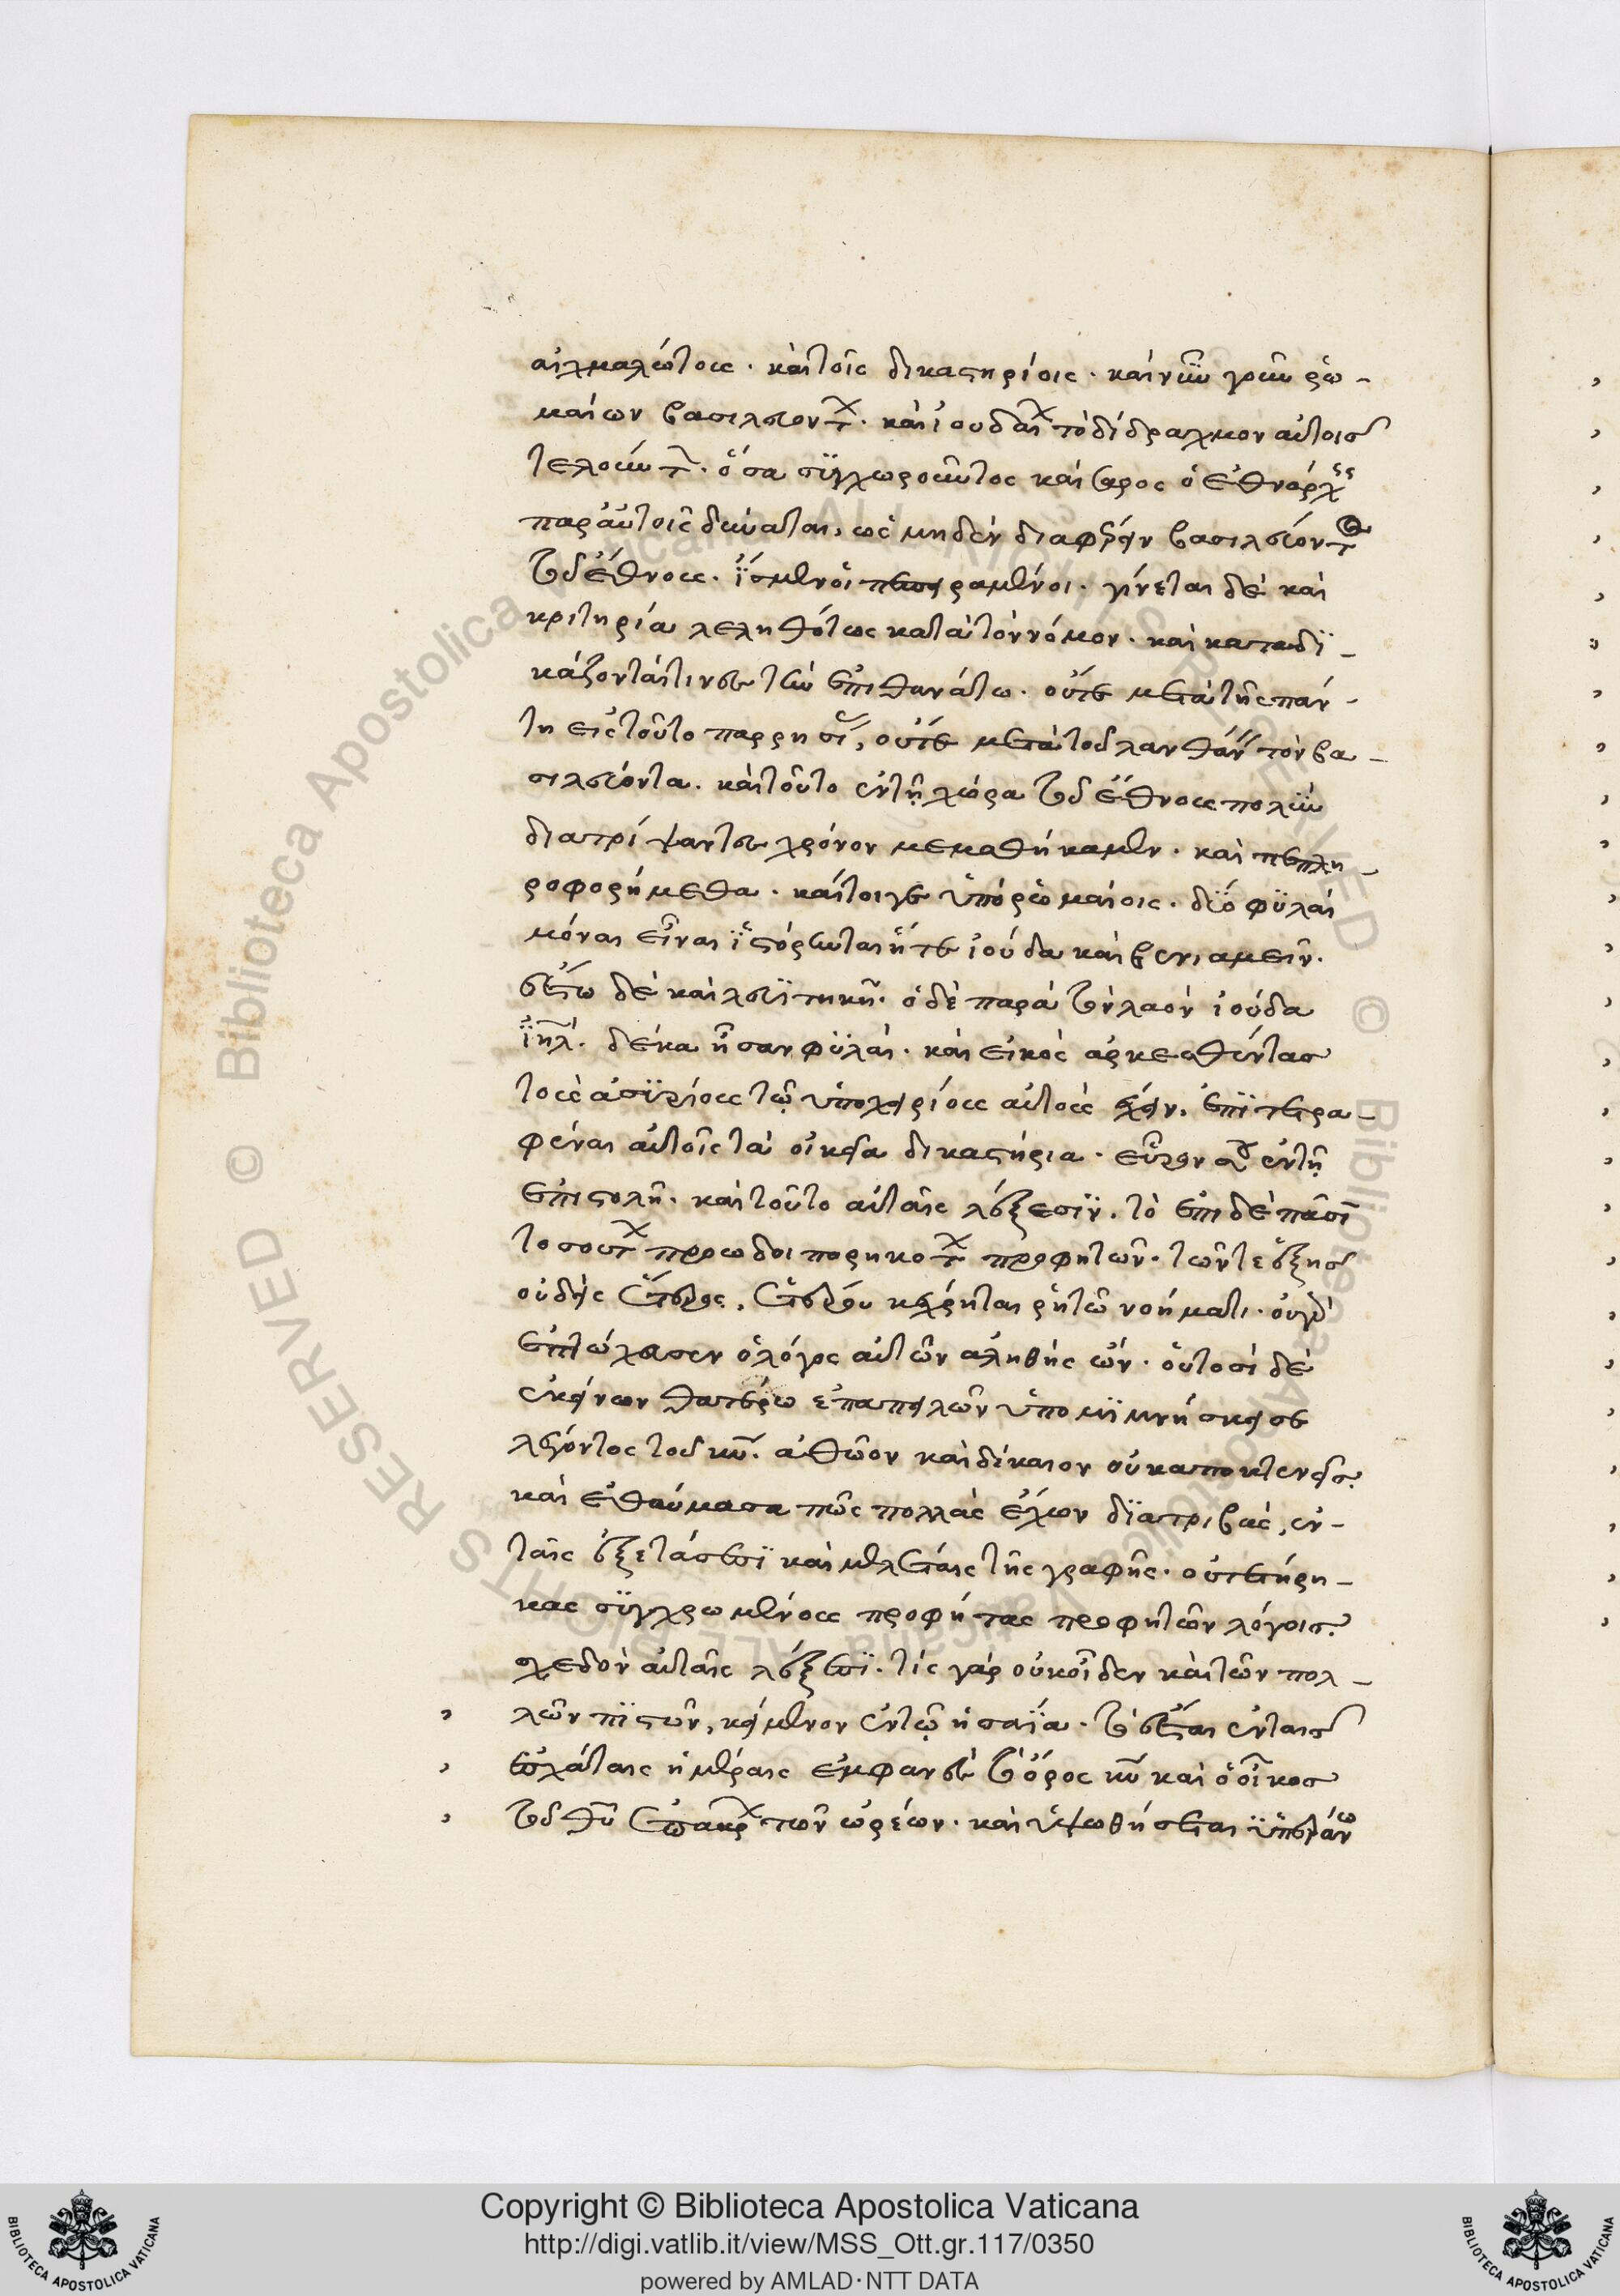 αἰχμαλώτους · καὶ τοῖς δικαστηρίοις · καὶ νῦν γοῦν ῥω-
μαίων βασιλευόντων · καὶ ἰουδαίων τὸ δίδραχμον αὐτοῖς
τελούντων · ὅσα σϋγχωροῦντος καίσαρος ὁ ἐθνάρχης
παρ' αὐτοῖς δύναται, ὡς μηδὲν διαφέρειν βασιλεύοντος
τοῦ ἔθνους · ἴσμεν οἱ πεπειραμένοι · γίνεται δὲ καὶ
κριτηρία λεληθότως κατὰ τὸν νόμον · καὶ καταδϊ-
κάζονταί τινες τὴν ἐπὶ θανάτω · οὔτε μετὰ τῆς πάν-
τη εἰς τοῦτο παρρησίας, οὔτε μετὰ τοῦ λανθάνειν τὸν βα-
σιλεύοντα · καὶ τοῦτο ἐν τῆ χώρα τοῦ ἔθνους πολὺν
διατρίψαντες χρόνον μεμαθήκαμεν · καὶ πεπλη-
ροφορήμεθα · καίτοιγε ὑπὸ ῥωμαίοις · δύο φϋλαὶ
μόναι εἶναι ϊστόρηνται ἥτε ἰούδα καὶ βενιαμεῖν ·
ἔξω δὲ καὶ λευϊτικῆ · ὁ δὲ παρὰ τὸν λαὸν ἰούδα
ἰηλ · δέκα ἦσαν φϋλαί · καὶ εἰκὸς ἀρκεσθέντας
τοὺς ἀσϋρίους τῷ ὑποχειρίους αὐτοὺς ἔχειν, ἐπιτετρα-
φέναι αὐτοῖς τὰ οἰκεῖα δικαστήρια · εὗρον ἐν τῆ
ἐπιστολῆ · καὶ τοῦτο αὐταῖς λέξεσιν · τὸ ἐπὶ δὲ πᾶσι
τοσούτων προωδοιπορηκότων προφητῶν · τῶν τε ἑξῆς
οὐδεὶς ἕτερος, ἑτέρου κέχρηται ῥητῶ νοήματι · οὐ γὰρ
ἐπτώχευσεν ὁ λόγος αὐτῶν ἀληθὴς ὤν · οὑτοσὶ δὲ
ἐκείνων θατέρω ἐπαπειλῶν ὑπομϊμνήσκει σε
λέγοντος τοῦ κυ · ἀθῶον καὶ δίκαιον οὐκ ἀποκτενεῖς.
καὶ ἐθαύμασα πῶς πολλὰς ἔχων διατριβὰς, ἐν
ταῖς ἐξετάσεσϊ καὶ μελέταις τῆς γραφῆς · οὐ τετήρη-
κας σϋγχρωμένους προφήτας προφητῶν λόγοις.
σχεδὸν αὐταῖς λέξεσϊ · τίς γὰρ οὐκ οἶδεν καὶ τῶν πολ-
λῶν πιστῶν, κείμενον ἐν τῷ ἠσαΐα · τὸ ἔσται ἐν ταῖς
ἐσχάταις ἡμέραις ἐμφανὲς τὸ ὄρος κυ καὶ ὁ οἶκος
τοῦ θυ ἐπ' ἄκρων τῶν ὀρέων · καὶ ὑψωθήσεται ὑπεράνω
Copyright © Biblioteca Apostolica Vaticana
http://digi.vatlib.it/view/MSS_Ott.gr.117/0350
powered by AMLAD·NTT DATA